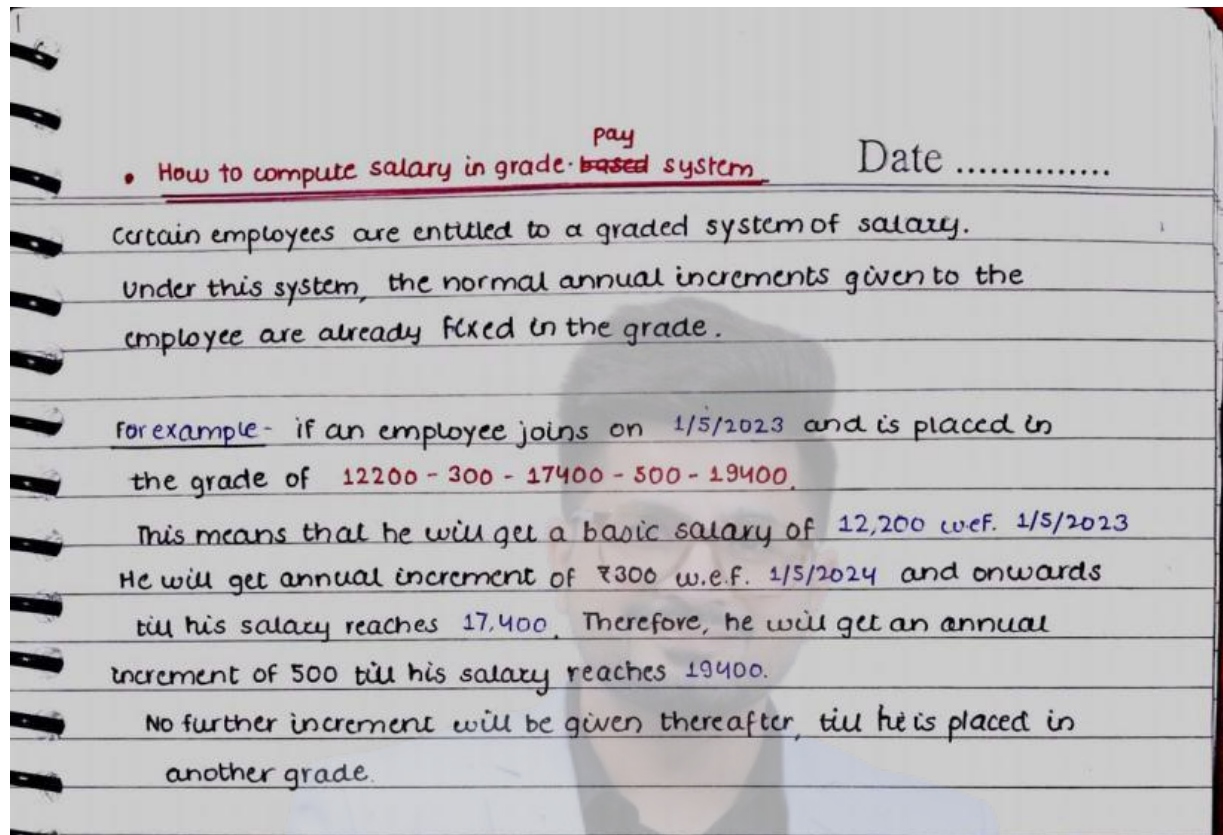 pay
• How to compute salary in grade based system Date ..............
Certain employees are entitled to a graded system of salary.
Under this system, the normal annual increments given to the
employee are already fixed in the grade.
For example - if an employee joins on 1/5/2023 and is placed in
the grade of 12200 - 300 - 17400 - 500 - 19400.
This means that he will get a basic salary of 12,200 w.e.f. 1/5/2023
He will get annual increment of ₹300 w.e.f. 1/5/2024 and onwards
till his salary reaches 17,400. Therefore, he will get an annual
increment of 500 till his salary reaches 19400.
No further increment will be given thereafter, till he is placed in
another grade.